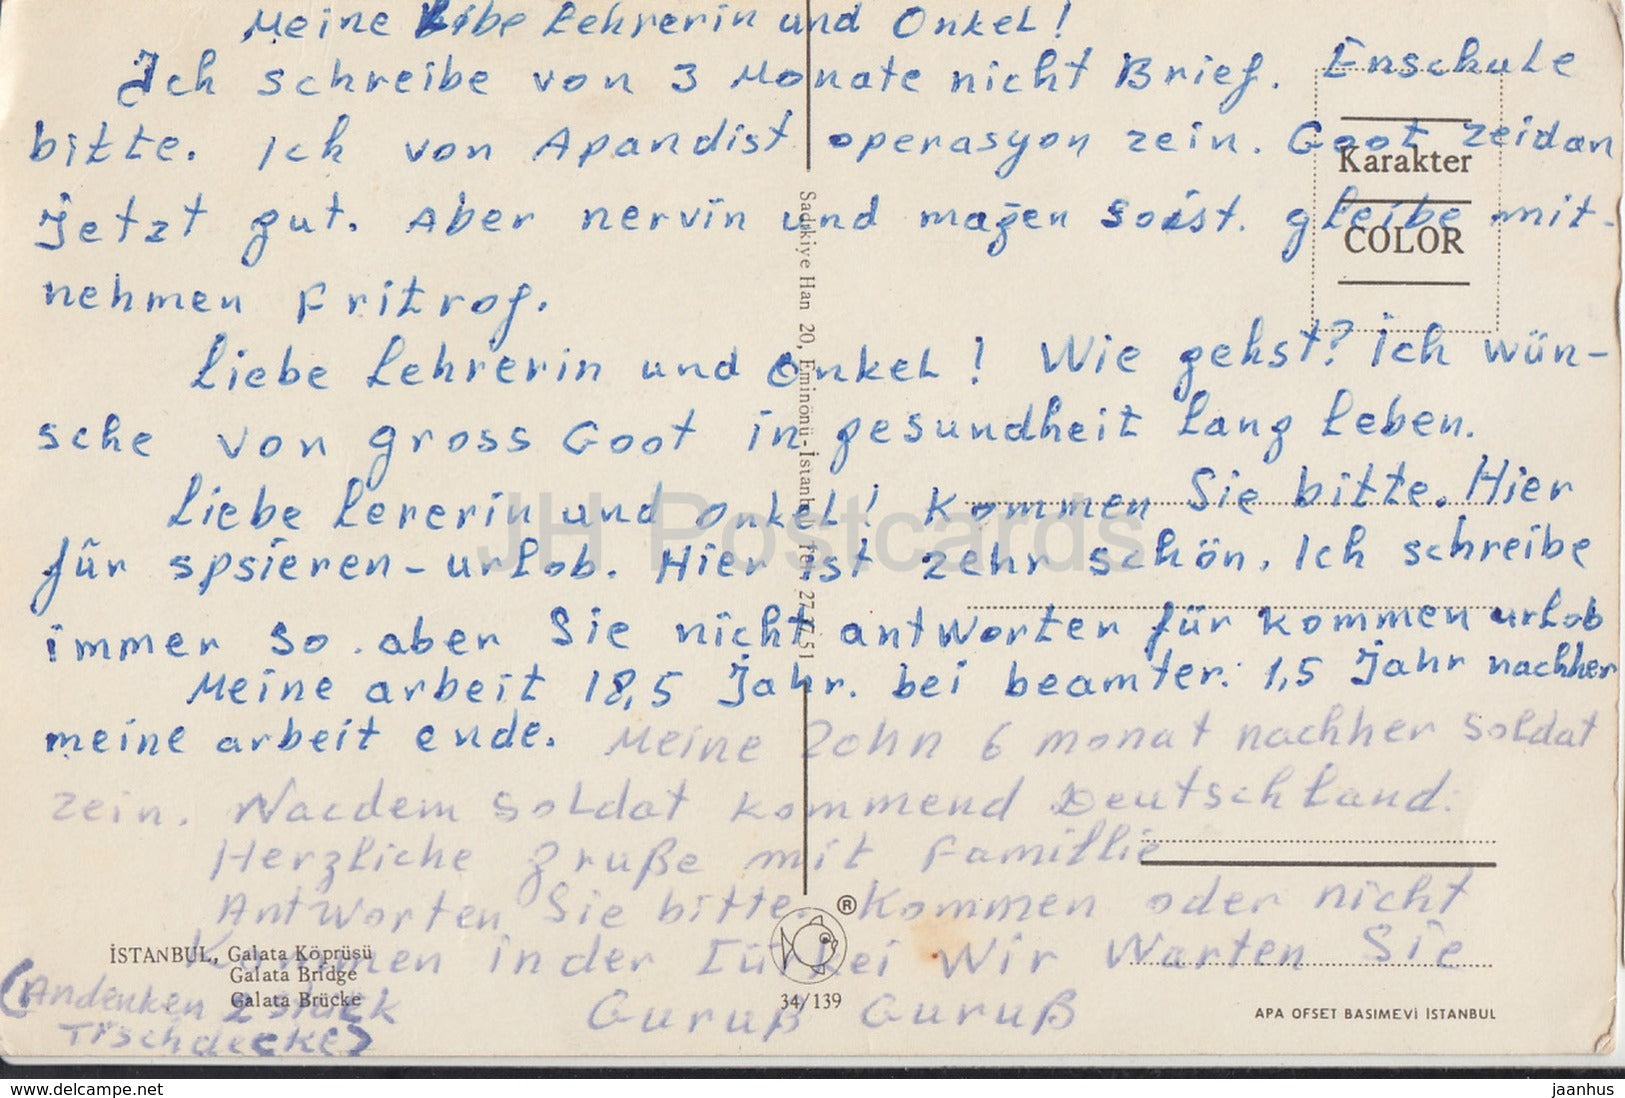 Meine Libe Lehrerin und Onkel!
Ich schreibe von 3 Monate nicht Brief. Enschule
bitte. Ich von Apandist operasyon zein. Goot zeidan
jetzt gut. Aber nervin und magen soist. gleibe mit-
nehmen Fritrof.
Liebe Lehrerin und Onkel! Wie gehst? ich wün-
sche von gross Goot in gesundheit lang leben.
Liebe Lererin und onkel! Kommen Sie bitte. Hier
für spsieren-urlob. Hier ist zehr schön. Ich schreibe
immer so. aber Sie nicht antworten für kommen urlob
Meine arbeit 18,5 Jahr. bei beamter. 1,5 Jahr nachher
meine arbeit ende. Meine Zohn 6 monat nachher soldat
zein. Nacdem soldat kommend Deutschland.
Herzliche gruße mit Famillie
Antworten Sie bitte. Kommen oder nicht
Kommen in der Türkei Wir Warten Sie
Guruß Guruß
(Andenken 2 stück
Tischdecke)
Karakter
COLOR
Sadıkiye Han 20, Eminönü-İstanbul Tel. 27 51
İSTANBUL, Galata Köprüsü
Galata Bridge
Galata Brücke
®
34/139
APA OFSET BASIMEVİ İSTANBUL
JH Postcards
www.delcampe.net
jaanhus